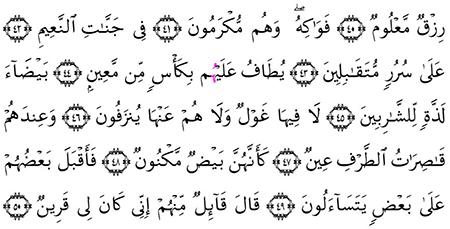 رِزْقٌ مَّعْلُومٌ ﴿٤٠﴾ فَوَاكِهُ ۖ وَهُم مُّكْرَمُونَ ﴿٤١﴾ فِى جَنَّٰتِ ٱلنَّعِيمِ ﴿٤٢﴾
عَلَىٰ سُرُرٍ مُّتَقَٰبِلِينَ ﴿٤٣﴾ يُطَافُ عَلَيْهِم بِكَأْسٍ مِّن مَّعِينٍۭ ﴿٤٤﴾ بَيْضَآءَ
لَذَّةٍ لِّلشَّٰرِبِينَ ﴿٤٥﴾ لَا فِيهَا غَوْلٌ وَلَا هُمْ عَنْهَا يُنزَفُونَ ﴿٤٦﴾ وَعِندَهُمْ
قَٰصِرَٰتُ ٱلطَّرْفِ عِينٌ ﴿٤٧﴾ كَأَنَّهُنَّ بَيْضٌ مَّكْنُونٌ ﴿٤٨﴾ فَأَقْبَلَ بَعْضُهُمْ
عَلَىٰ بَعْضٍ يَتَسَآءَلُونَ ﴿٤٩﴾ قَالَ قَآئِلٌ مِّنْهُمْ إِنِّى كَانَ لِى قَرِينٌ ﴿٥٠﴾